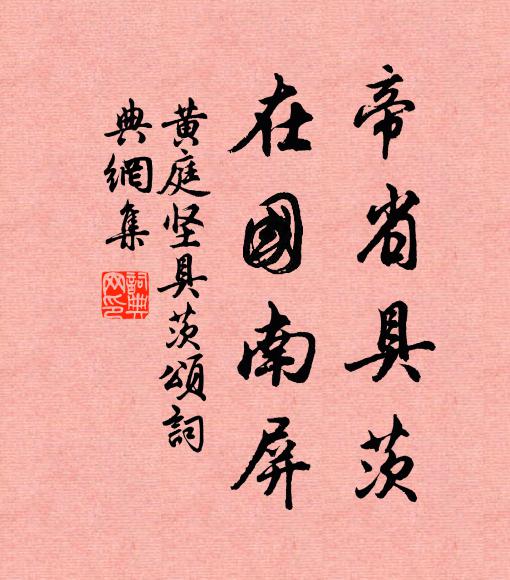 帝省具茨
在國南屏
黄庭坚具茨頌詞
典網集
詞典
网印